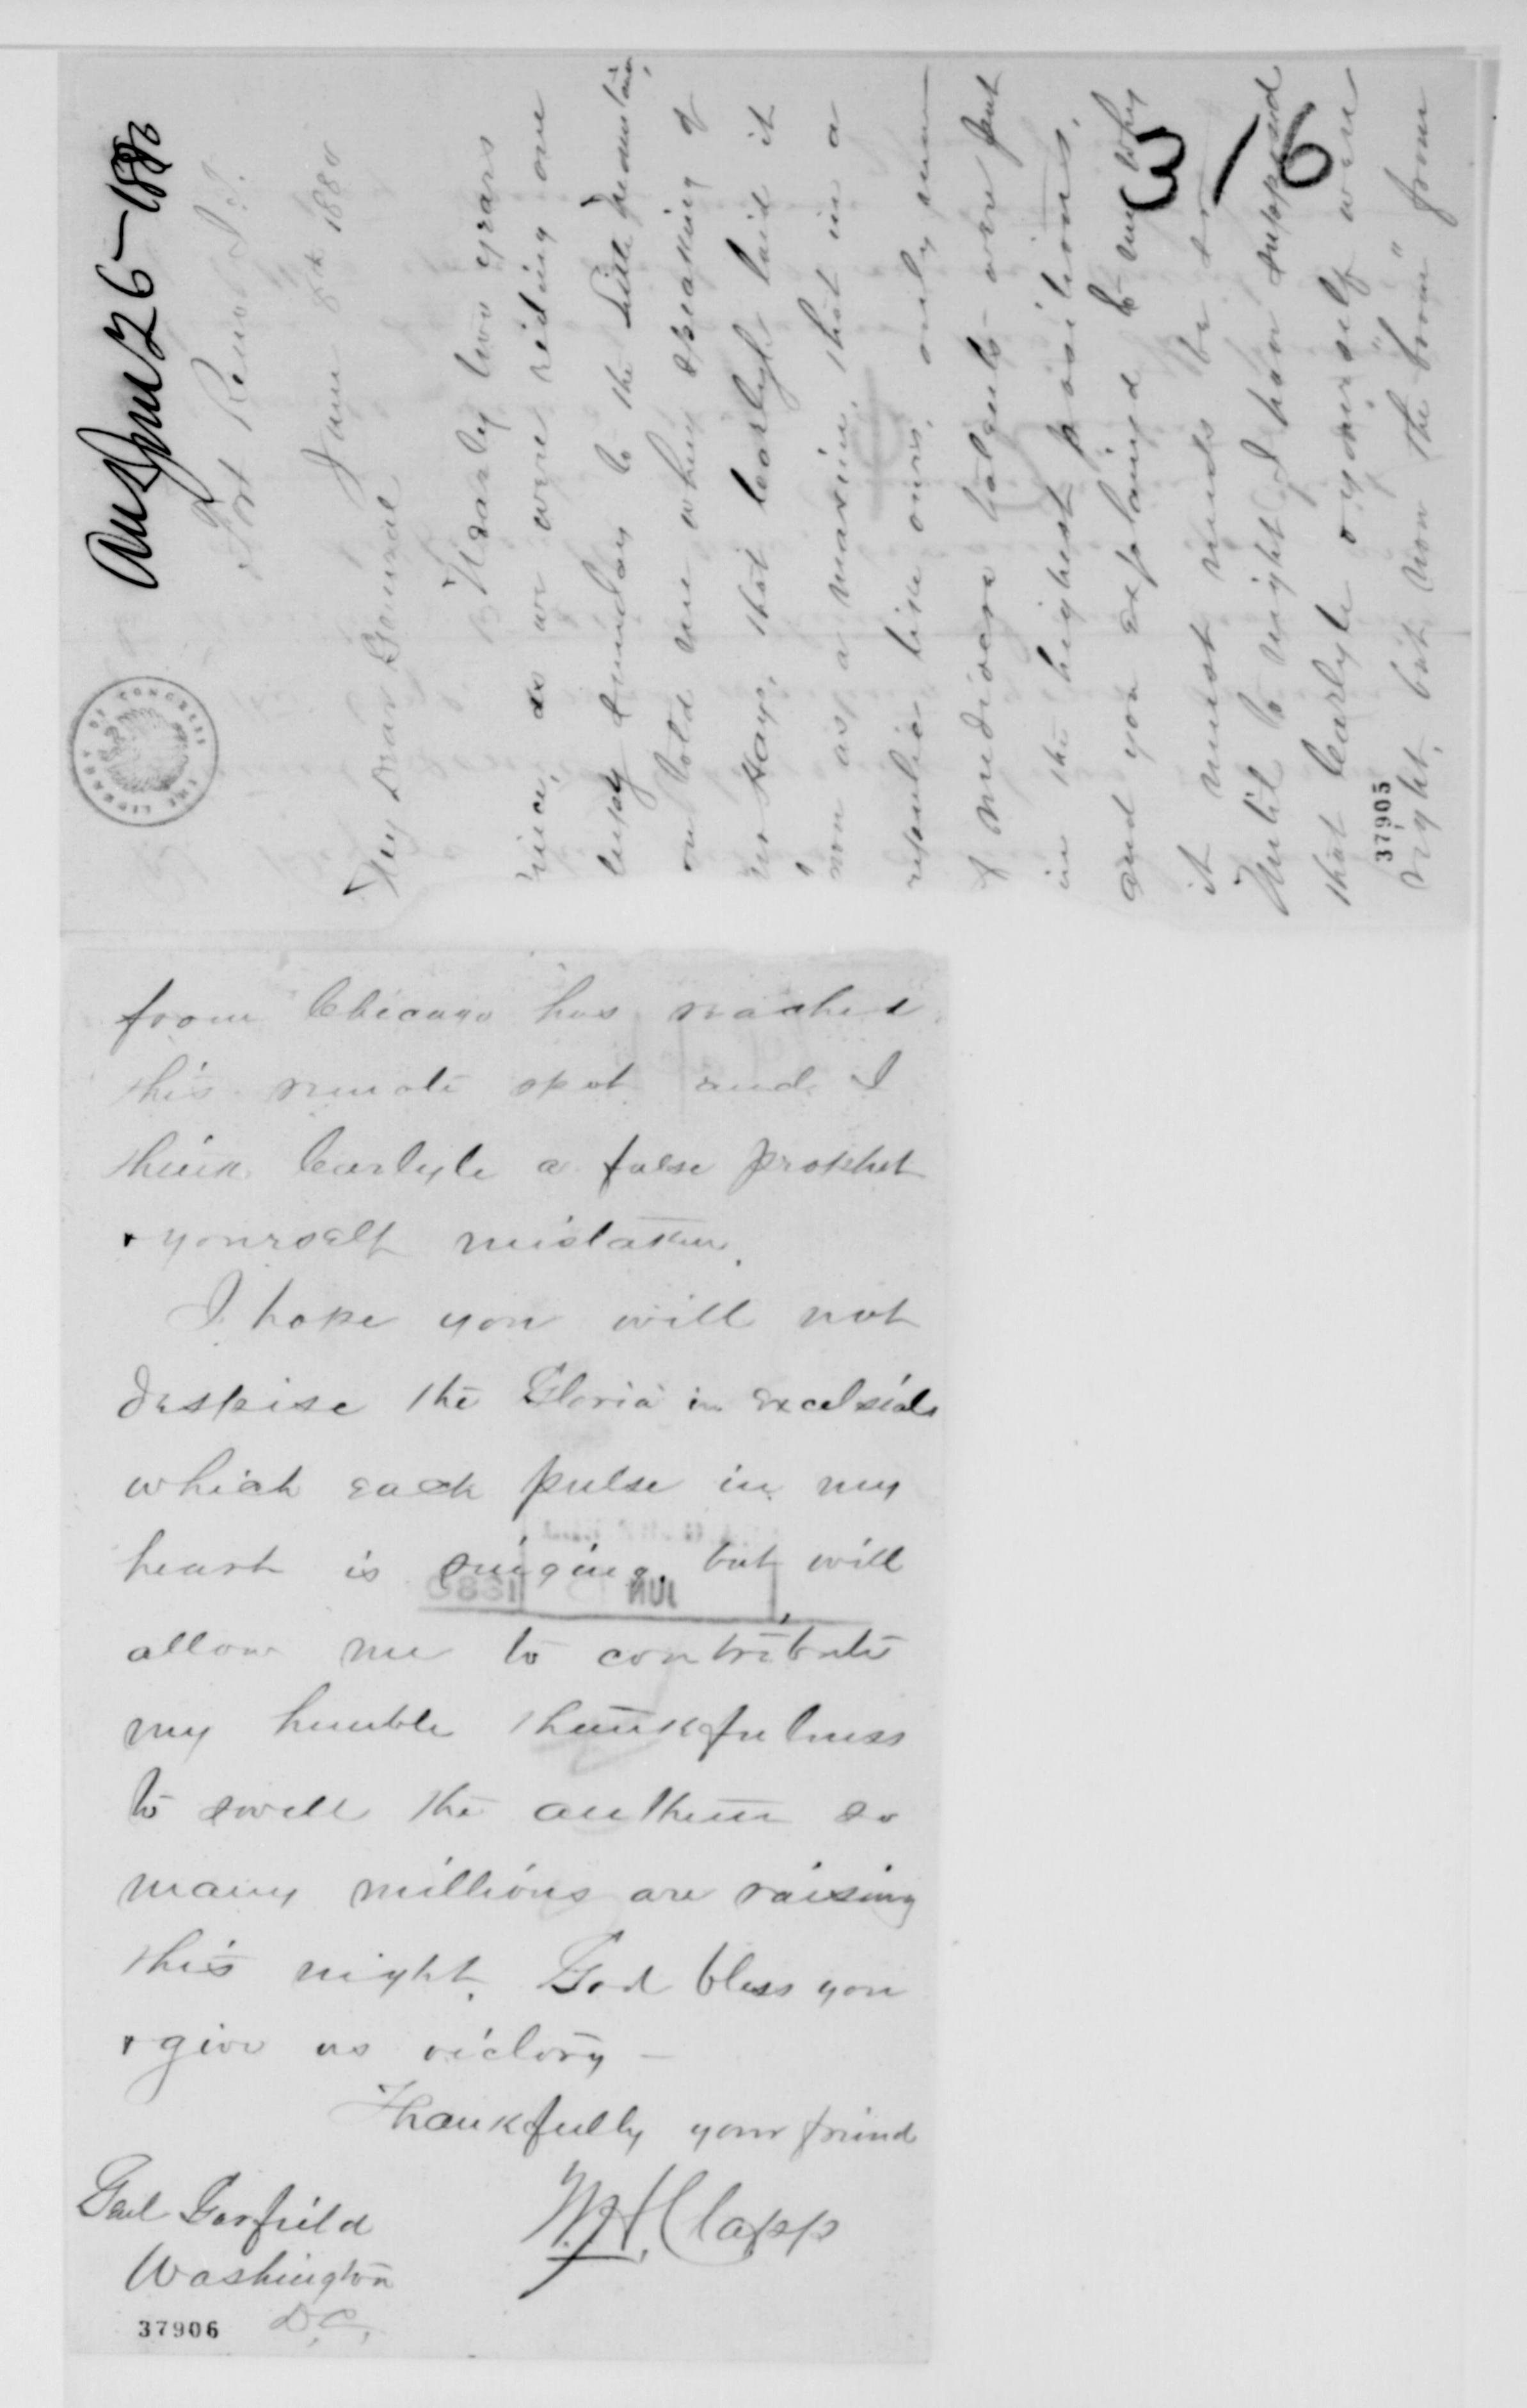 Ans June 26-1880
Fort Reno I.T.
June 8th 1880
My Dear General
Nearly two years
since, as we were riding one
sunny Sunday to the Little Mountain,
you told me when speaking of
Mr Hays, that Carlyle laid it
down as a maxim, that in a
republic like ours, only men
of mediocre talents were put
in the highest positions,
and you explained to me why
it must needs be so
Until to night I have supposed
that Carlyle & yourself were
right, but now the "boom" from
316
37905
THE LIBRARY OF CONGRESS
from Chicago has reached
this remote spot and I
think Carlyle a false prophet
& yourself mistaken.
I hope you will not
despise the Gloria in Excelsis
which each pulse in my
heart is singing, but will
allow me to contribute
my humble thankfulness
to swell the anthem so
many millions are raising
this night. God bless you
& give us victory –
Thankfully your friend
W.H. Clapp
Genl Garfield
Washington
D.C.
37906
JUN 1880